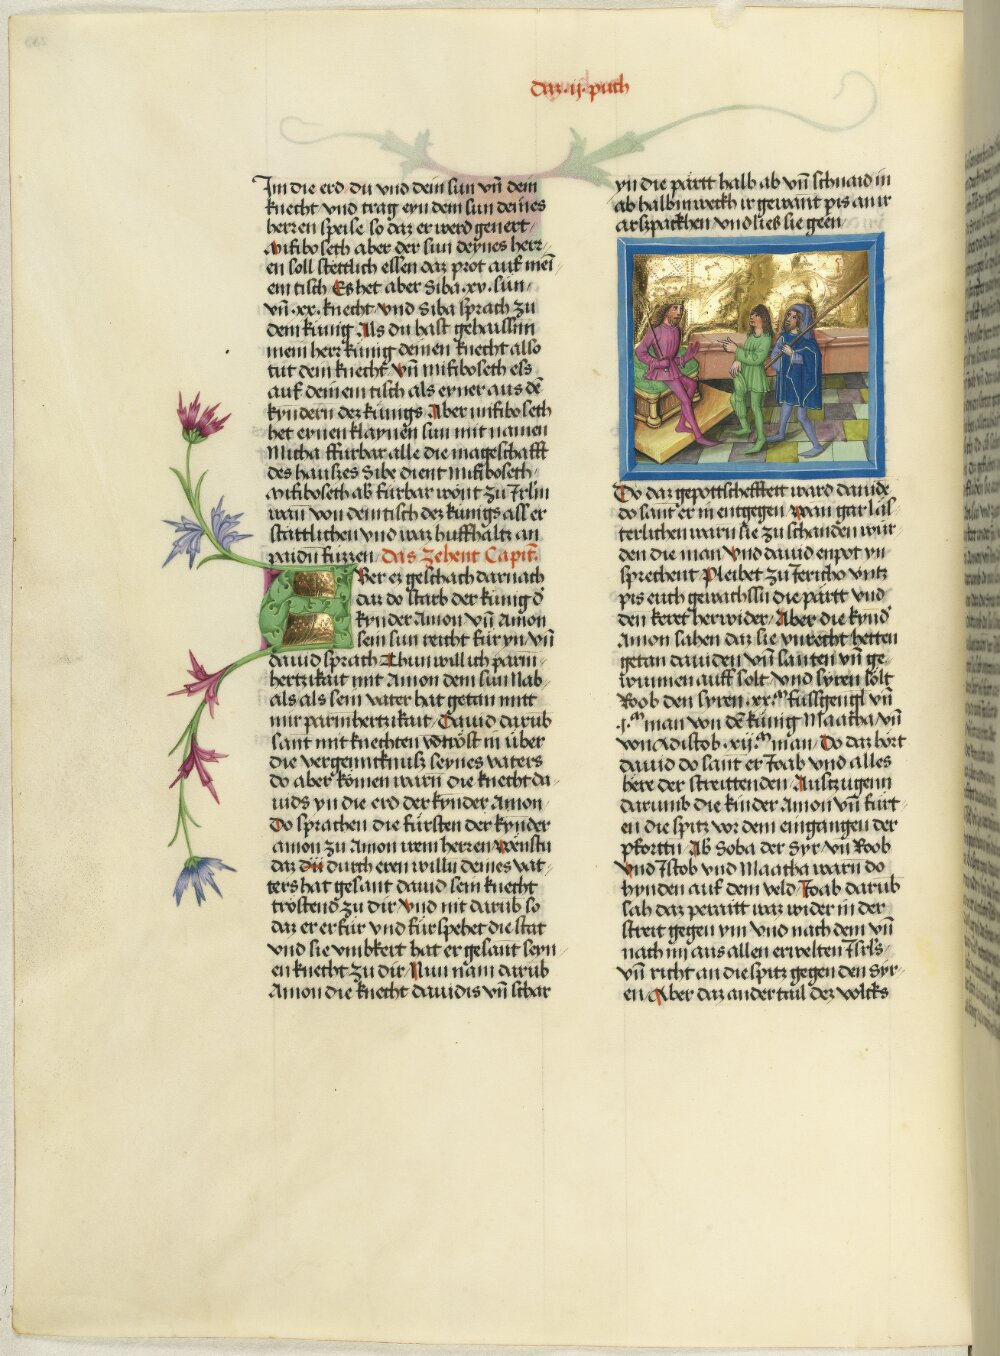 daz .ij. puch
Im die erd du vnd dein sun vn̄ dein
knecht vnd trag eyn dem sun deines
herren speise so daz er werd genert
Mifiboseth aber der sun deynes herr-
en soll stettlich essen daz prot auf mei-
em tisch Es het aber Siba .xv. sun-
vn̄ .xx. knecht vnd Siba sprach zu
dem kunig Als du hast gehaissen
mein herr kunig deinen knecht also
tut dem knecht Vn̄ Mifiboseth ess
auf deinem tisch als eyner aus dē
kyndern dez kunigs Aber mifiboseth
het eynen klaynen sun mit namen
Micha ffurbar alle die mageschafft
des hauszes Sibe dient Mifiboseth
Mifiboseth ab̄ furbar wont zu Jrlm
wan von dem tisch dez kunigs ass er
stattlichen vnd waz huffhaltz an
paidn̄ fuzzen das Zehent Capit̄.
Aber ez geschach darnach
daz do starb der kunig d̄
kynder Amon vn̄ Amon
sein sun reicht fur yn vn̄
dauid sprach Ich will ich parm-
hertzikait mit Amon dem sun Nab-
als als sein vater hat getan mitt
mir parmhertzikait Dauid darub
sant mit knechten vo trost in uber
die vergenncknusz seynes vaters
do aber komen warn die knecht da-
uids yn die erd der kynder Amon
Do sprachen die fursten der kynder
amon zu Amon irem herren Wenstu
daz dū durch eren willn deines vat-
ters hat gesant dauid sein knecht
trostend zu dir Vnd nit darub so
daz er erfur vnd furspehet die stat
vnd sie vmbkert hat er gesant seyn-
en knecht zu dir Nun nam darub
Amon die knecht dauidis vn̄ schar
yn die partt halb ab vn̄ schnaid in
ab halb in weckh ir gewant pis an ir
arszpackhen vnd liesz sie geen
Do daz gepottscheffftett ward dauide
do sant er in entgegen wan gar las-
terlichen warn sie zu schanden wur-
den die man Vnd dauid enpot yn
sprechent Pleibet zu Jericho vntz
pis euch gewachssn die partt vnd
den keret herwider Aber die kynd̄
Amon sahen daz sie vnrecht hetten
getan dauiden vn̄ santen vn̄ ge-
wunnen auff solt vnd syren solt
Roob den syren .xx.m fussgengl vn̄
.j.m man von dē kunig Maatha vn̄
von Adistob .xij.m man Do daz hort
dauid do sant er Joab vnd alles
here der streittenden Ausszugenn
darumb die kinder Amon vn̄ furt-
en die spitz vor dem eingangen der
pforttn Ab Soba der Syr vn̄ Roob
Vnd Jstob vnd Maatha warn do
hynden auf dem veld Joab darub
sah daz peraitt waz wider in der
streit gegen ym vnd nach dem vn̄
nach im aus allen erwelten Jsrls
vn̄ richt an die spitz gegen den Syr-
en Aber daz ander tail dez volcks